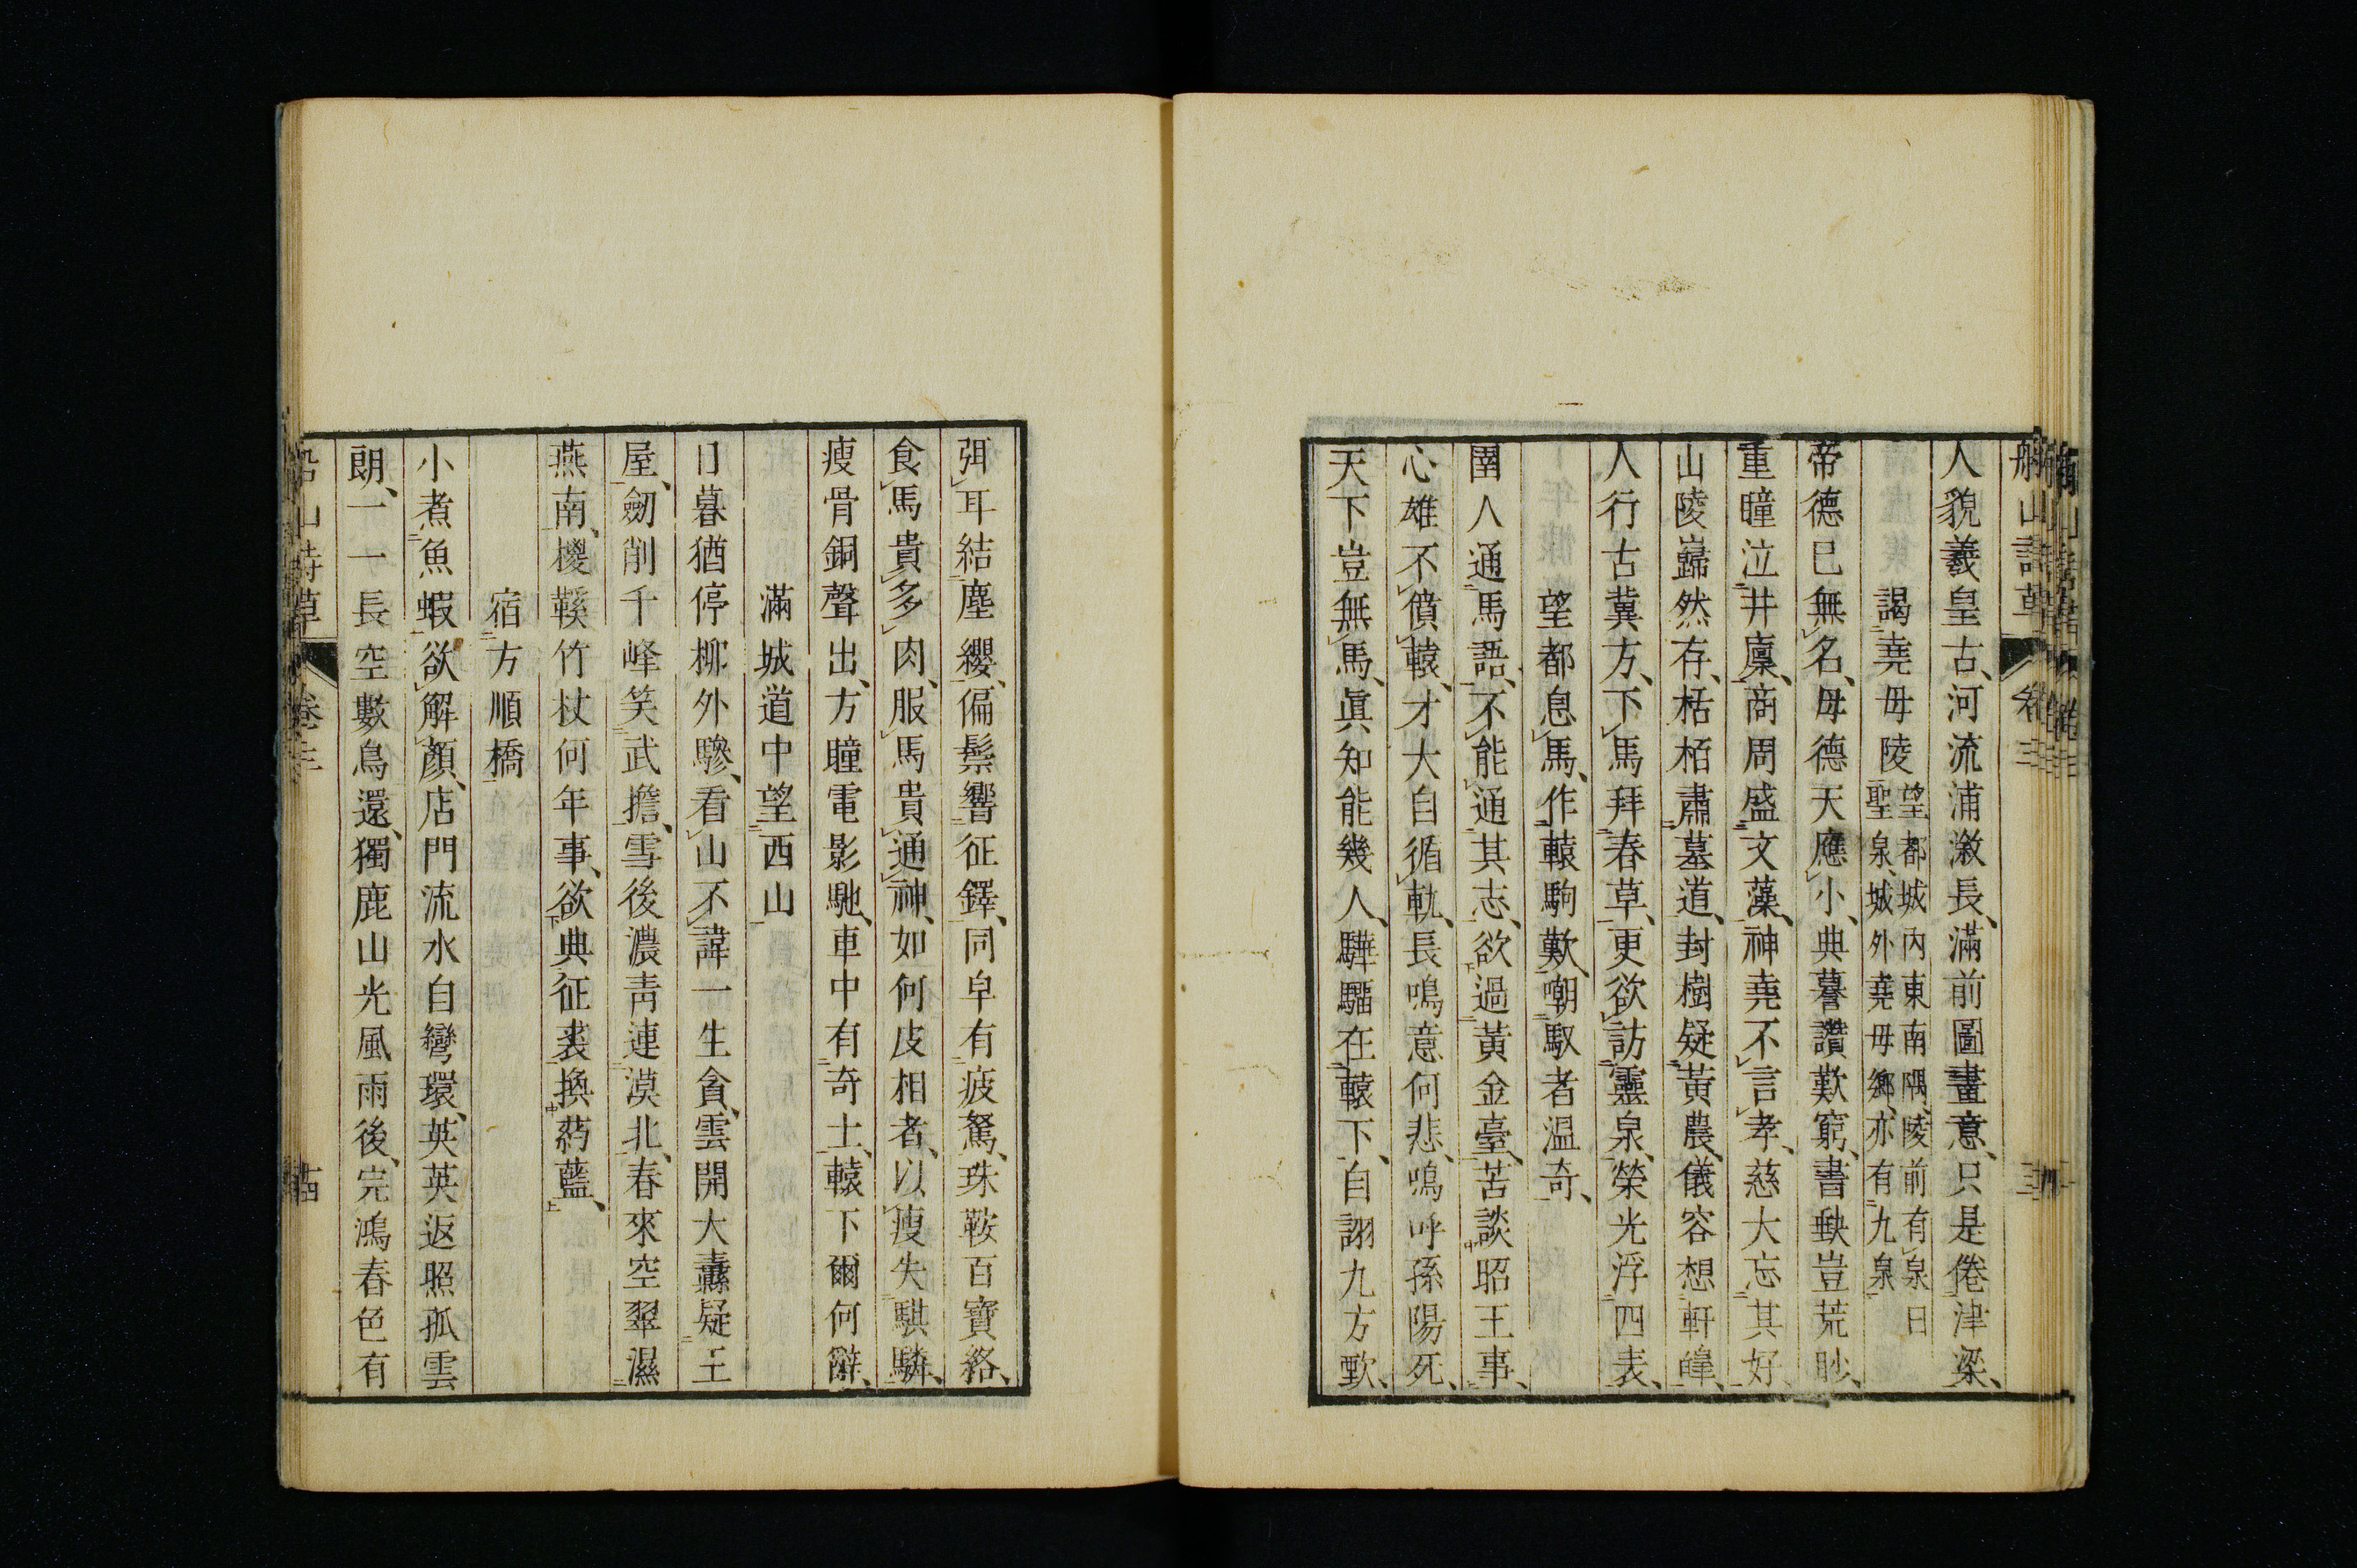 人貌羲皇古、河流浦漵長、滿前圖畫意、只是倦津梁、
謁堯母陵
望都城內東南隅、陵前有泉日
聖泉、城外堯母鄉、亦有九泉
帝德已無名、母德天應小、典謩讚歎窮、書缺豈荒眇、
重瞳泣井廩、商周盛文藻、神堯不言孝、慈大忘其好
山陵巋然存、栝栢肅墓道、封樹疑黃農、儀容想軒皥、
人行古冀方、下馬拜春草、更欲訪靈泉、榮光浮四表、
望都息馬、作轅駒歎、嘲馭者溫奇、
圉人通馬語、不能通其志、欲過黃金臺、苦談昭王事、
心雄不僨轅、才大自循軌、長鳴意何悲、嗚呼孫陽死、
天下豈無馬、眞知能幾人、驊騮在轅下、自詡九方歅、
弭耳結塵纓、偏鬃響征鐸、同皁有疲駑、珠鞍百寶絡、
食馬貴多肉、服馬貴通神、如何皮相者、以瘦失騏驎、
瘦骨銅聲出、方瞳電影馳、車中有奇士、轅下爾何辭、
滿城道中望西山
日暮猶停柳外驂、看山不諱一生貪、雲開大纛疑王
屋、劒削千峰笑武擔、雪後濃靑連漠北、春來空翠濕
燕南、椶鞵竹杖何年事、欲典征裘換葯藍、
宿方順橋
小煮魚蝦欲解顏、店門流水自彎環、英英返照孤雲
朗、一一長空數鳥還、獨鹿山光風雨後、完鴻春色有
船山詩草 卷三 十四